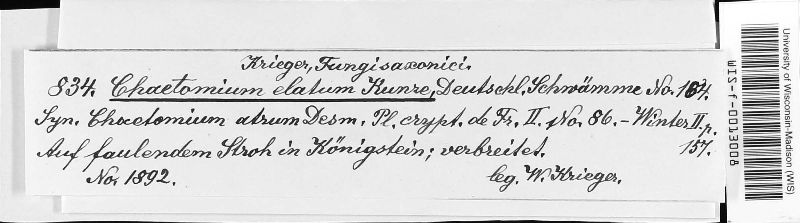 Krieger, Fungi saxonici.
834. Chaetomium elatum Kunze, Deutschl. Schwämme No. 184.
Syn. Chaetomium atrum Desm. Pl. crypt. de Fr. II. No. 86. – Winter II. p. 157.
Auf faulendem Stroh in Königstein; verbreitet.
Nov. 1892. leg. W. Krieger.
WIS-f-0013008
University of Wisconsin-Madison (WIS)